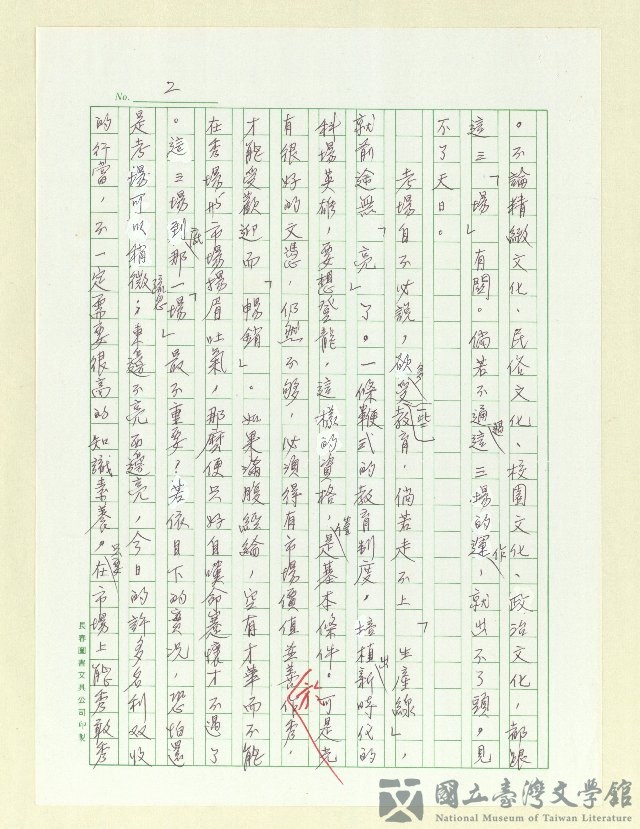 No. 2
。不論精緻文化、民俗文化、校園文化、政治文化,都跟
這三「場」有關。倘若不通過這三場的運作,就出不了頭,見
不了天日。
考場自不必說,欲多受一些教育,倘若走不上「生產線」,
就前途無「亮」了。一條鞭式的教育制度,培植出新時代的
科場英雄,要想登龍,這樣的資格,是基本條件。可是光
有很好的文憑,仍然不够,必須得有市場價值並善於作秀,
才能受歡迎而「暢銷」。如果滿腹經綸,空有才華而不能
在秀場或市場揚眉吐氣,那麼便只好自嘆命蹇懷才不遇了
。這三場到底那一「場」最不重要?若依目下的實況,恐怕還
是考場可以稍微疏忽;東邊不亮西邊亮,今日的許多名利双收
的行當,不一定需要很高的知識素養,只要在市場上能秀敢秀
長春圖書文具公司印製
國立臺灣文學館
National Museum of Taiwan Literature